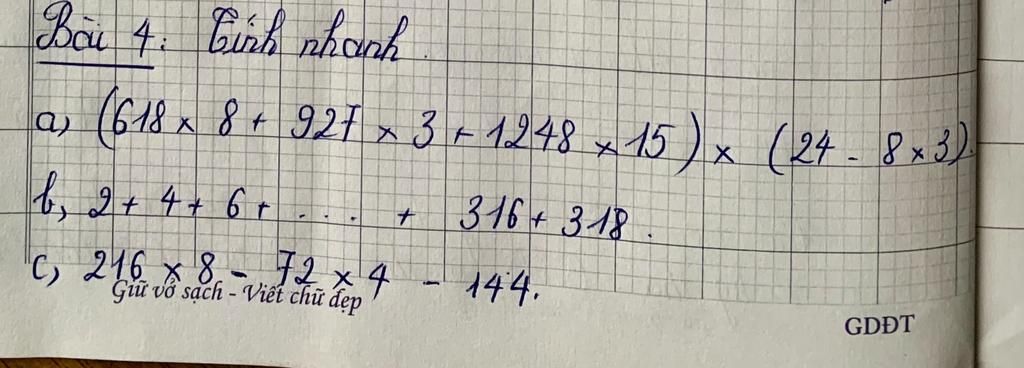 Bài 4: Tính nhanh.
a, (618 x 8 + 927 x 3 + 1248 x 15) x (24 - 8 x 3).
b, 2 + 4 + 6 + .... + 316 + 318.
c, 216 x 8 - 72 x 4 - 144.
Giữ vở sạch - Viết chữ đẹp
GDĐT